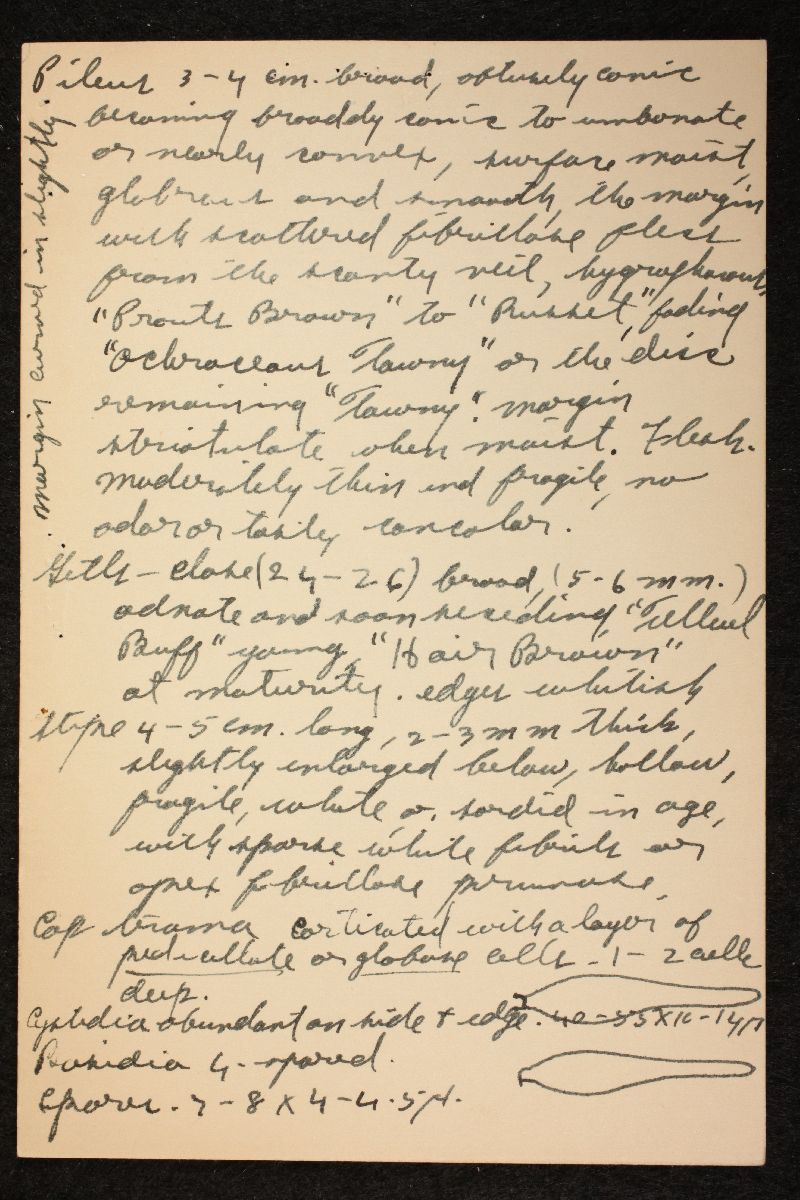 Pileus 3-4 cm. broad, obtusely conic
becoming broadly conic to umbonate
or nearly convex, surface moist,
glabrous and smooth, the margin
with scattered fibrillose flecs
from the scanty veil, hygrophanous,
"Prouts Brown" to "Russet," fading
"Ochraceous Tawny" or the disc
remaining "Tawny". margin
striatulate when moist. Flesh.
moderately thin and fragile, no
odor or taste, concolor.
Gills - close (24-26) broad, (5-6 mm.)
adnate and soon seceding, "Tilleul
Buff" young, "Hair Brown"
at maturity. edges whitish
Stipe 4-5 cm. long, 2-3 mm thick,
slightly enlarged below, hollow,
fragile, white or sordid in age,
with sparse white fibrils or
apex fibrillose pruinose
Cap trama corticated with a layer of
pedicellate or globose cells - 1-2 cells
deep.
Cystidia abundant on side + edge. 40-55 X 11-14 μ
Basidia 4-spored.
Spores. 7-8 X 4-4.5 μ.
margin curved in slightly.